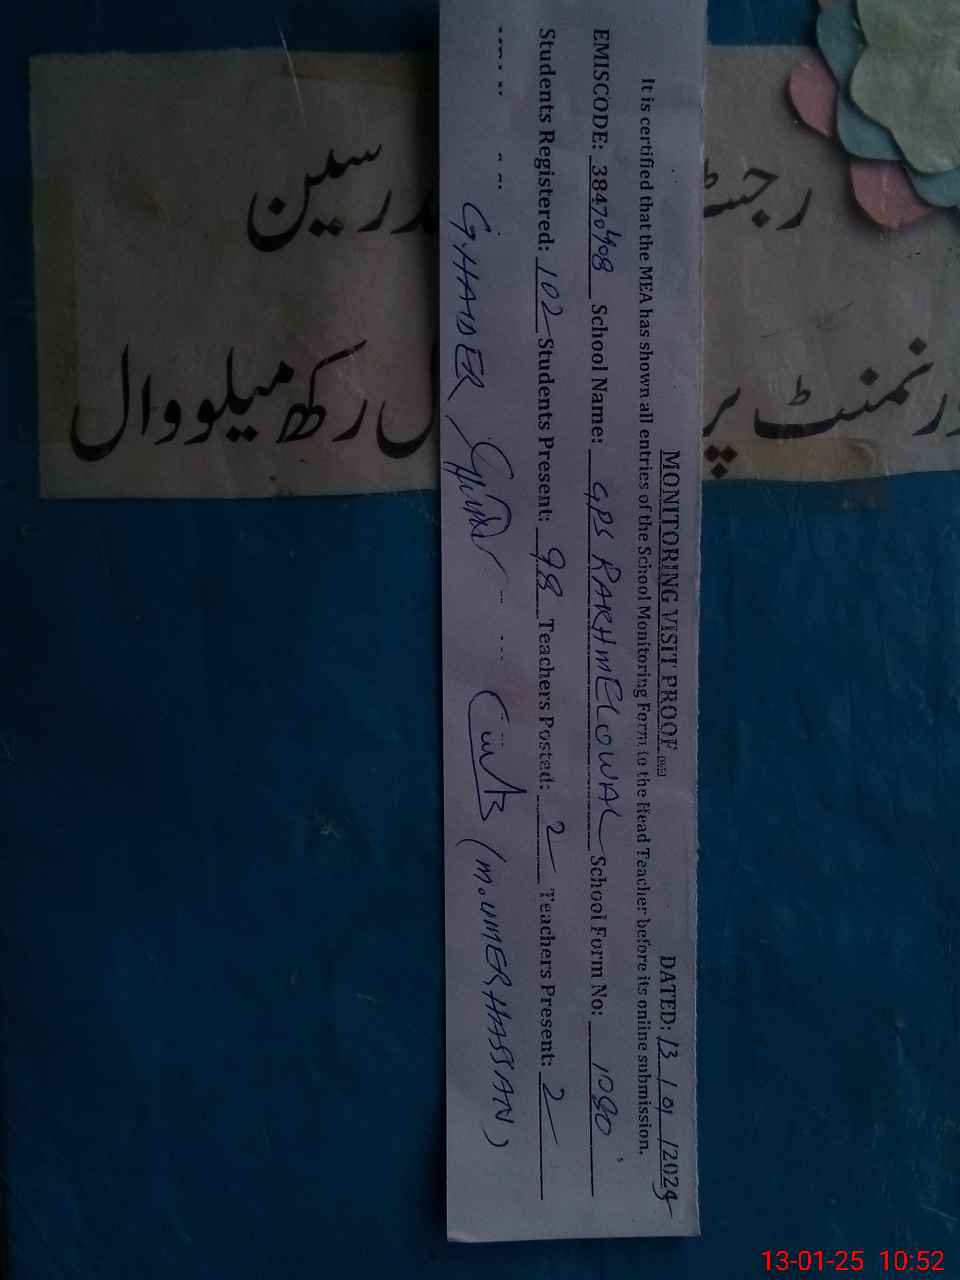 MONITORING VISIT PROOF DATED: 13/01/2024
It is certified that the MEA has shown all entries of the School Monitoring Form to the Head Teacher before its online submission.
EMISCODE: 38470408 School Name: GPS RAKHMELOWAL School Form No: 1080
Students Registered: 102 Students Present: 98 Teachers Posted: 2 Teachers Present: 2
G.HAIDER (M.UMER HASSAN)
رجسٹر
رسین
رنمنٹ پر ل رکھ میلووال
13-01-25 10:52